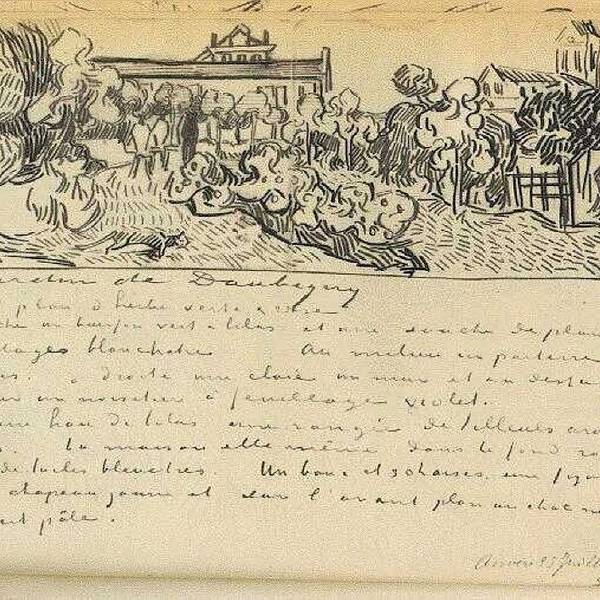 jardin de Daubigny
plan d'herbe verte & rose
un buisson vert & lilas et une souche de plan
llages blanchatres Au milieu un parterre
à droite une claie un mur et au dessu
un noisetier à feuillage violet.
une haie de lilas une rangée de tilleuls
La maison elle même dans le fond ro
de tuiles bleuatres. Un banc et 3 chaises, une figu
chapeau jaune et sur l'avant plan un chat n
ert pâle.
Auvers 23 Juill